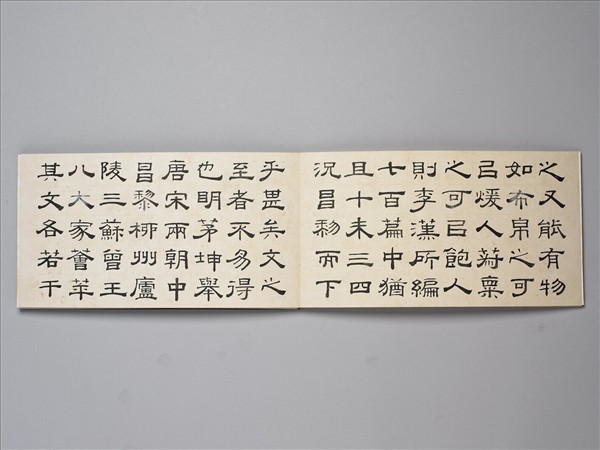 之又能有物
如布帛之可
㠯煖人菽粟
之可㠯飽人
則李漢所編
七百篇中猶
且十未三四
況昌黎而下
乎甚矣文之
至者不易得
也明茅坤舉
唐宋兩朝中
昌黎柳州廬
陵三蘇曾王
八大家薈萃
其文各若干